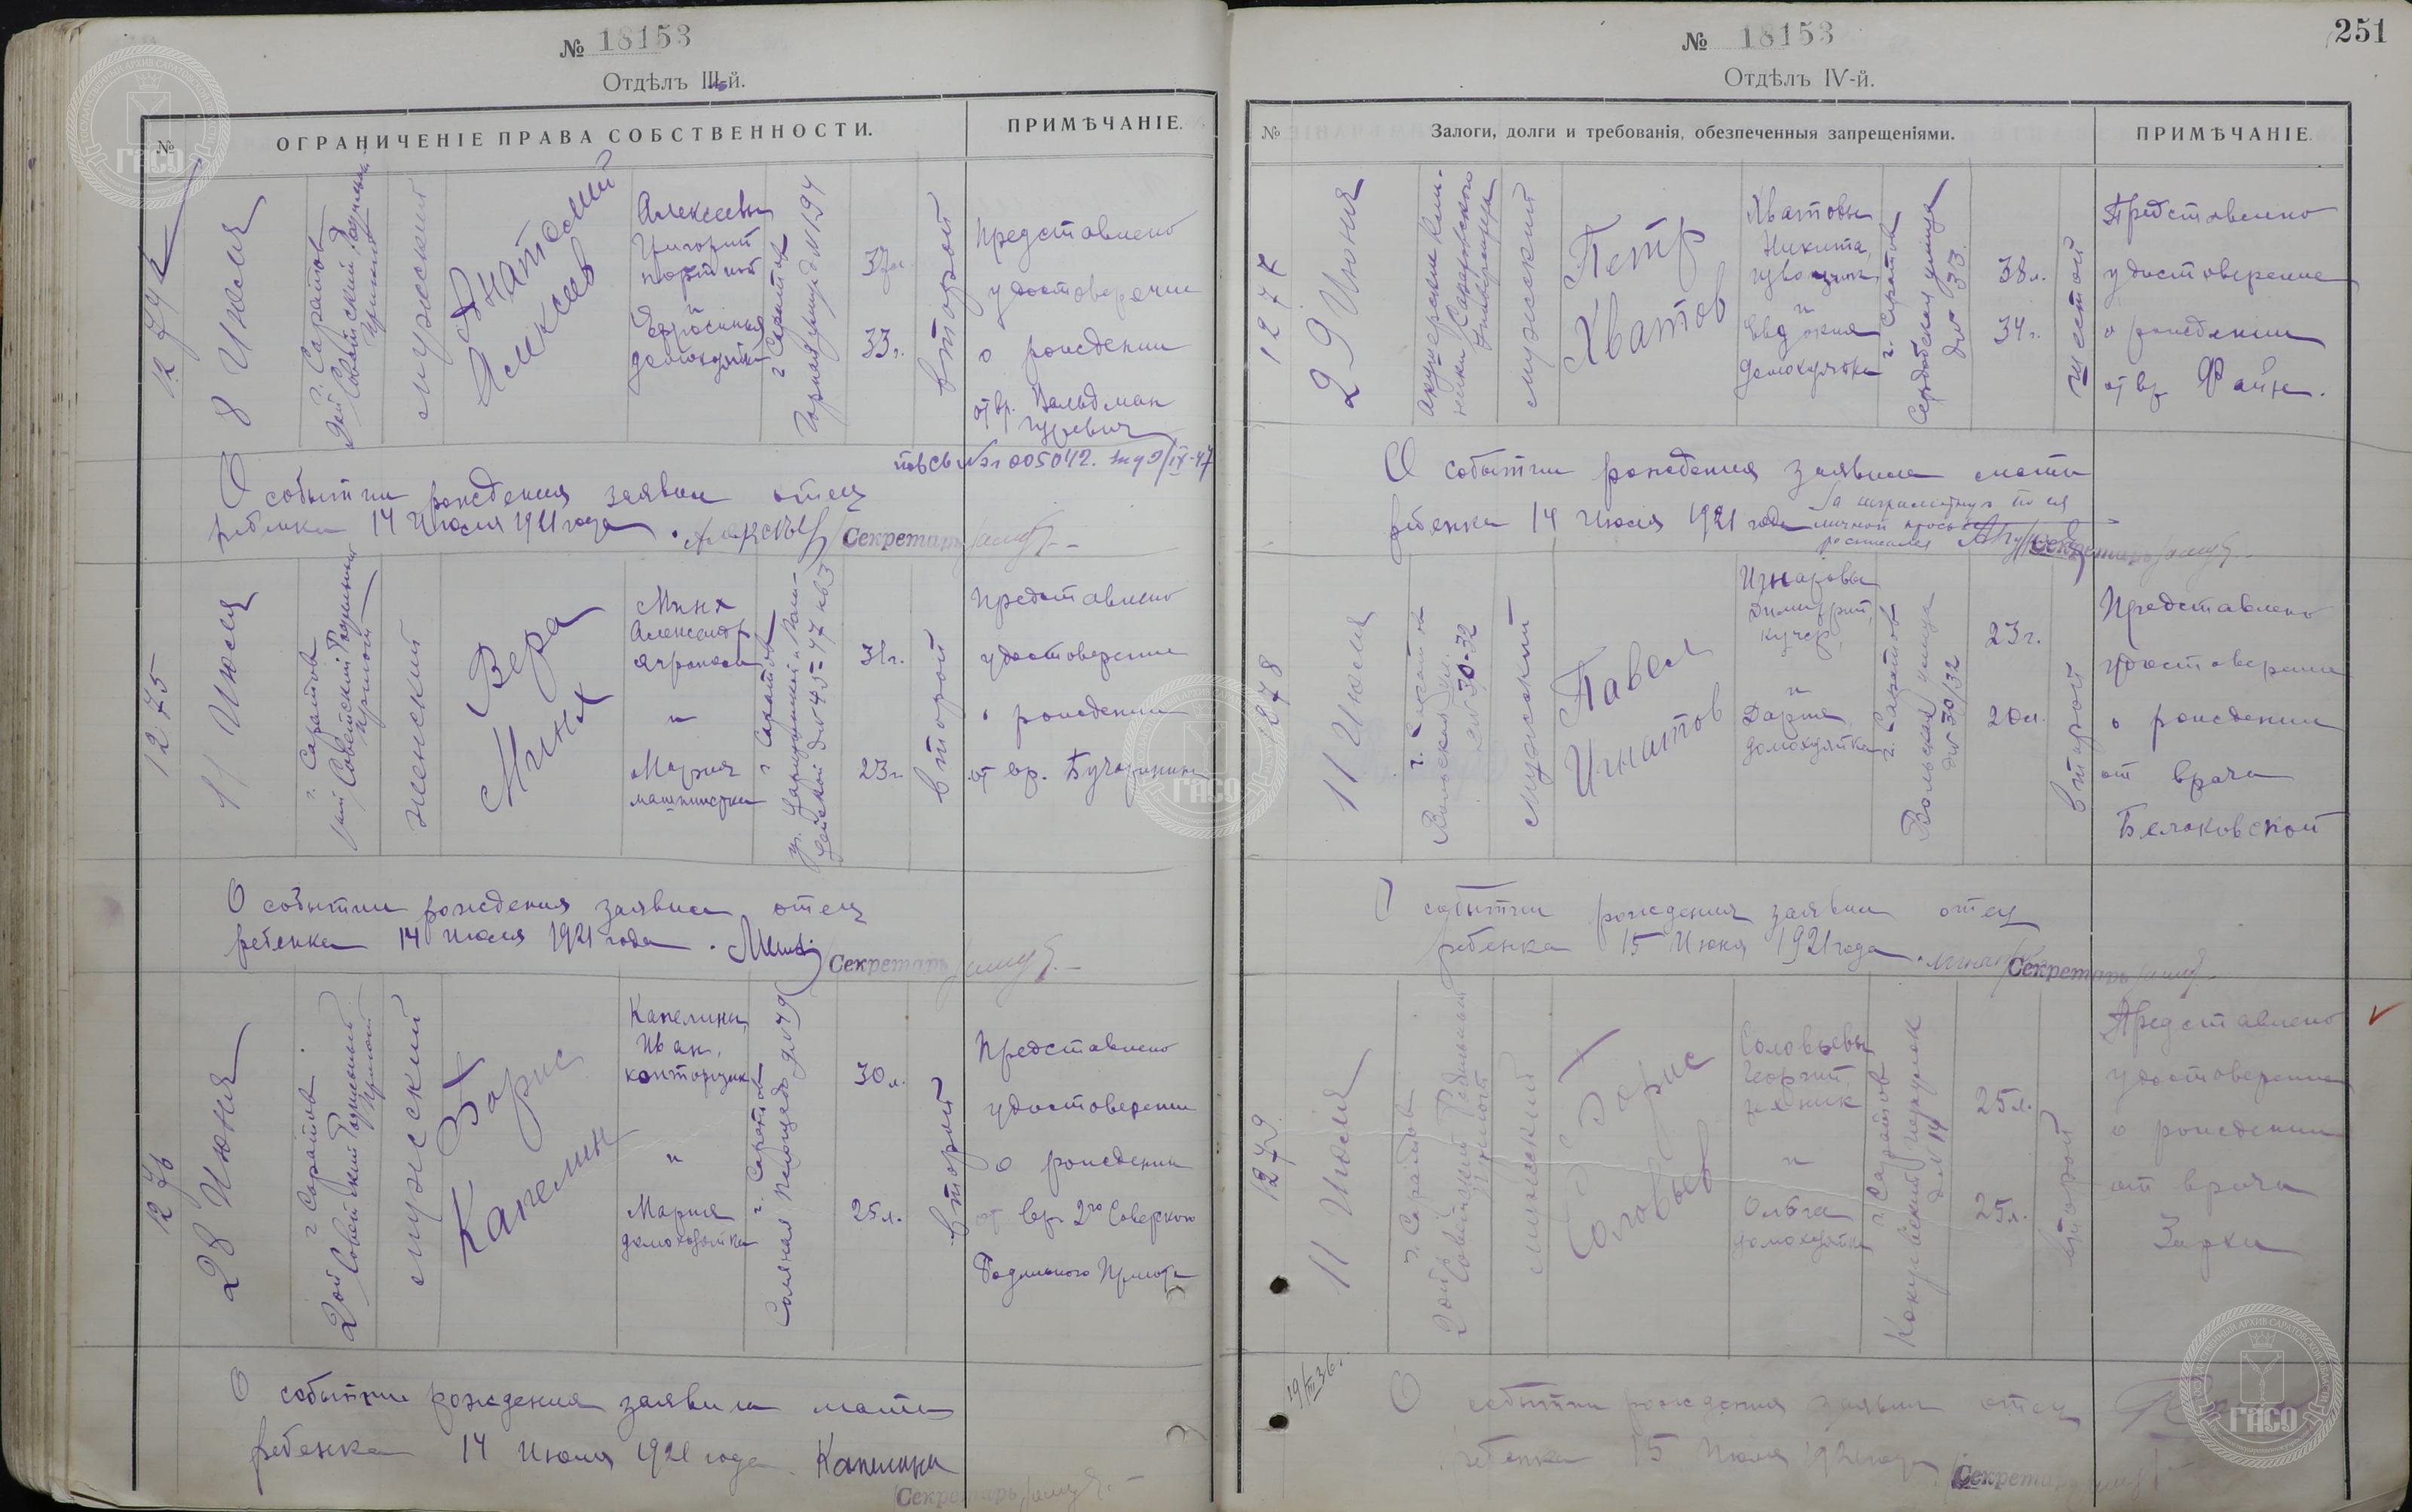 № 18153
Отдѣлъ III-й.
№
ОГРАНИЧЕНІЕ ПРАВА СОБСТВЕННОСТИ.
ПРИМѢЧАНІЕ.
1274
8 Июля
г. Саратов
2ой Советский Родильный
Приют
мужский
Анатолий
Алексеев
Алексеевы
Григорий
портной
и
Ефросинья
домохозяйка
г. Саратов
Горная улица д№ 194
37л.
33г.
второй
Представлено
удостоверение
о рождении
от вр. Гольдман
Гуревич
005042.
О событии рождения заявил отец
ребенка 14 Июля 1921 года.
Секретарь
1275
11 Июля
г. Саратов
Советский Родильный
Приют
женский
Вера
Минх
Минх
Александр
агроном
и
Мария
машинистка
г. Саратов
уг. Царицынской и Поли-
цейской д№ 45=47 кв 3
31г.
23г.
второй
Представлено
удостоверение
о рождении
от вр.
О событии рождения заявил отец
ребенка 14 Июля 1921 года.
Секретарь
1276
28 Июня
г. Саратов
2ой Советский Родильный
Приют
мужский
Капелин
Капелины
Иван,
конторщик
и
Мария
домохозяйка
г. Саратов
Соляная площадь д№ 49
30л.
25л.
второй
Представлено
удостоверение
о рождении
от вр. 2го Советского
Родильного Приюта
О событии рождения заявила мать
ребенка 14 Июля 1921 года. Капелина
Секретарь
№ 18153
251
Отдѣлъ IV-й.
№
Залоги, долги и требованія, обезпеченныя запрещеніями.
ПРИМѢЧАНІЕ.
1277
29 Июня
Акушерские Кли-
ники Саратовского
Университета
мужский
Петр
Хватов
Хватовы
Никита,
и
Евдокия
домохозяйка
г. Саратов
Сердобская улица
д№ 33.
38л.
34г.
шестой
Представлено
удостоверение
о рождении
от вр Файн.
О событии рождения заявила мать
ребенка 14 Июля 1921 года
За неграмотную по ея
личной просьбе
расписался
Секретарь
1278
11 Июля
г. Саратов
Вольская ул.
д№ 30-32
мужский
Павел
Игнатов
Димитрий,
кучер
и
Дарья
домохозяйка
г. Саратов
Вольская улица
д№ 30/32
23г.
20л.
второй
Представлено
удостоверение
о рождении
от врача
О событии рождения заявил отец
ребенка 15 Июля 1921 года.
Секретарь
1279
11 Июля
г. Саратов
2ой Советский Родильный
Приют
мужский
Борис
Соловьев
Соловьевы
Георгий,
и
Ольга
домохозяйка
г. Саратов
переулок
д№ 14
25л.
25л.
второй
Представлено
удостоверение
о рождении
от врача
О событии рождения заявил отец
ребенка 15 Июля 1921 года
Секретарь
ГАСО
ГАСО
ГАСО